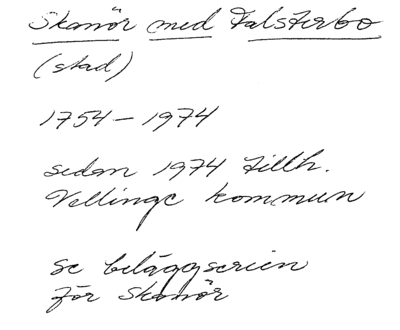 Skanör med Falsterbo
(stad)
1754–1974
sedan 1974 tillh.
Vellinge kommun
se beläggserien
för Skanör